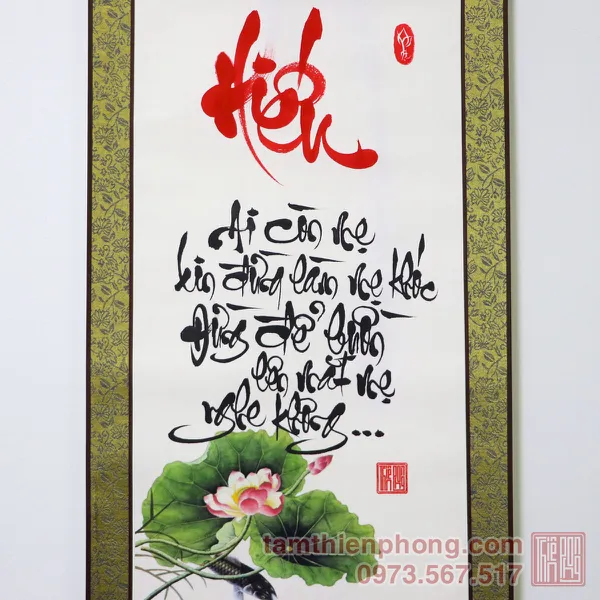 Hiếu
Ai còn mẹ
xin đừng làm mẹ khóc
Đừng để buồn
lên mắt mẹ
nghe không...
tamthienphong.com
0973.567.517